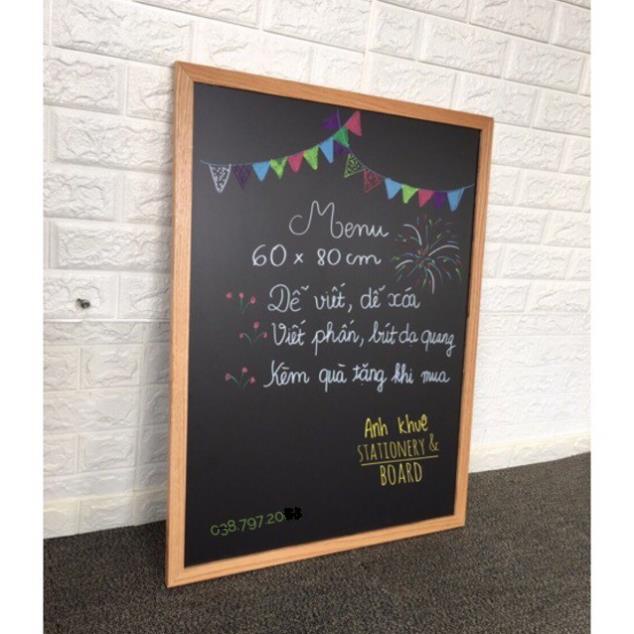 Menu
60 x 80 cm
Dễ viết, dễ xoá
Viết phấn, bút dạ quang
Kèm quà tặng khi mua
Anh Khuê
STATIONERY &
BOARD
038.797.20